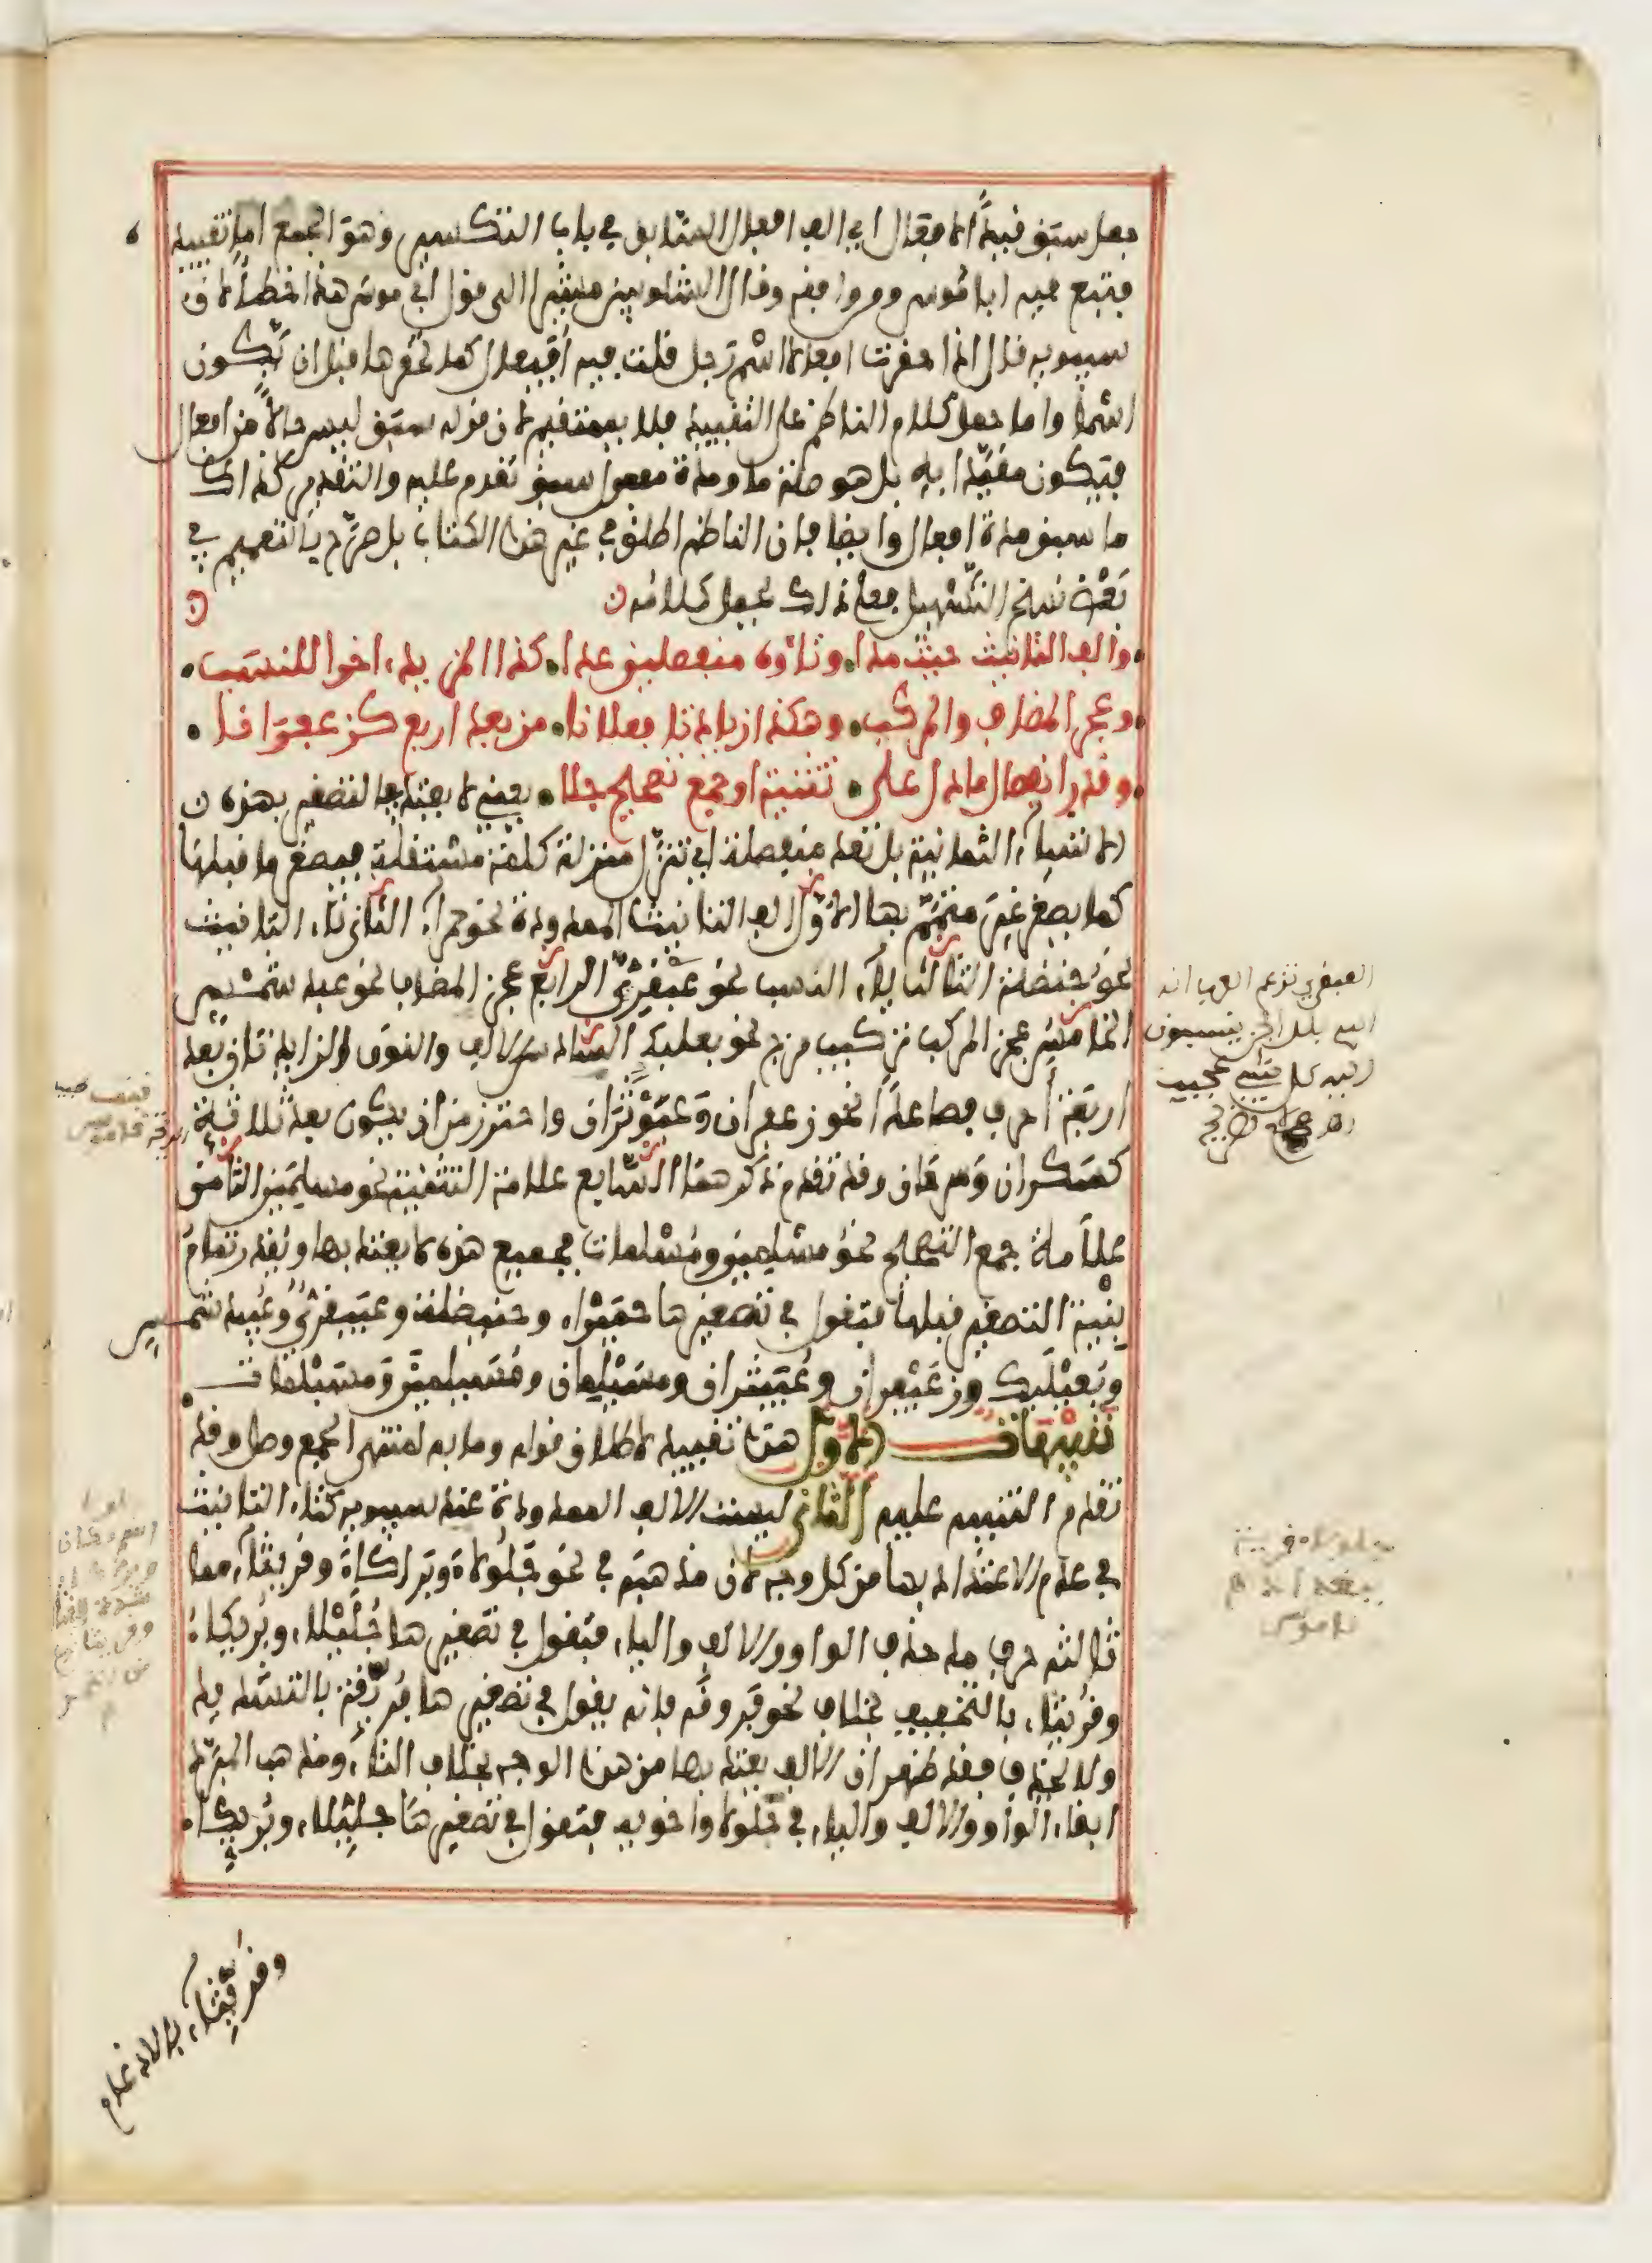 جعل سَبَق قيداً لافعال اي الف افعال السّابق في باب التكسير وهوَ الجمع اما تقييده
فتبع فيه ابا مُوسى ومن وافقه وقال الشلوبين مشيرا الى قول ابي موسَى هذا خطأ لان
سيبويه قال اذا حقرت افعالا اسْم رَجل قلت فيه أُفَيعال كما تحقرها قبل ان تكون
اسْما واما حمل كلام الناظم على التقييد فلا يستقيم لان قوله سبَق ليس حالاً من افعال
فيَكون مقيّدا بهِ بل هو صلة ما ومدة مفعول سبق تقدم عليه والتقدير كذاك
ما سبق مدة افعال وايضا فان الناظم اطلق في غير هذا الكتاب بل صرّح بالتعميم في
بَعْض نسخ التَّسْهيل فعلى ذلك يحمل كلامه
والف التانيث حيث مدا وتاوه منفصلين عدا كذا المزيد اخرا للنسَب
وعجز المضاف والمركب وهكذا زيادتا فعلانا من بعد اربع كزعفرانا
وقدر انفصال ما دل على تثنية او جمع تصحيح جلا يعني لا يعتد في التصغير بهذه
الاشياء الثمانية بل تعد منفصلة اي تنزّل منزلة كلمة مستقلة فيصغر ما قبلها
كما يصغر غيرَ متمّم بها الاوّل الف التانيث الممدودة نحو حمراء الثاني تاء التانيث
نحو حنظلة الثالث ياء النسب نحو عبْقريّ الرابع عجز المضاف نحو عبد شمْس
الخامس عجز المركب تركيب مزج نحو بعلبك السادس الالف والنون الزايدتان بعد
اربَعَة أحرف فصاعداً نحو زعفران وَعَبَوْثَرَان واحترز من ان يكون بعد ثلاثة
كسكران وَسرحان وقد تقدم ذكرهما السّابع علامة التثنية نحو مسلمَين الثامن
علامة جمع التصحيح نحوُ مسْلمِين ومُسْلمات فجميع هذه لا يعتد بها ويُقدر تمام
بِنْية التصغير قبلها فتقول في تصغيرها حُمَيْراء وحنيظلة وعبيقريّ وعُبيد شمس
وبُعَيْلَبك وزعَيْفران وعُبَيْثران ومسَيْلِمان ومُسَيلمين ومسَيْلمات
تنبيهات الاول هذا تقييد لاطلاق قوله وما به لمنتهى الجمع وصل وقد
تقدم التنبيه عليه الثاني ليست الالف الممدودة عند سيبويه كتاء التانيث
في عدم الاعتداد بها من كل وجه لان مذهبه في نحو جَلُولاءَ وبَراكاءَ وقريثاء مما
ثالثه حرف مد حذف الواو والالف والياء فتقول في تصغيرها جُلَيْلاء وبُرَيكاء
وقُرَيثاء بالتخفيف بخلاف نحو فروقة فانه يقول في تصغيرها فُريّقة بالتشديد
ولا يحذف فقد ظهر ان الالف يعتد بها من هذا الوجه بخلاف التاء ومذهب المبرّد
ابقاء الواو والالف والياء في جلولا واخويه فتقول في تصغيرها جليّلاء وبُريّكاء
وقُرَيِّثاء بالادغام
العبقري تزعم العرب انه
اسم بلد الجن ينسبون
اليه كل شيء عجيب